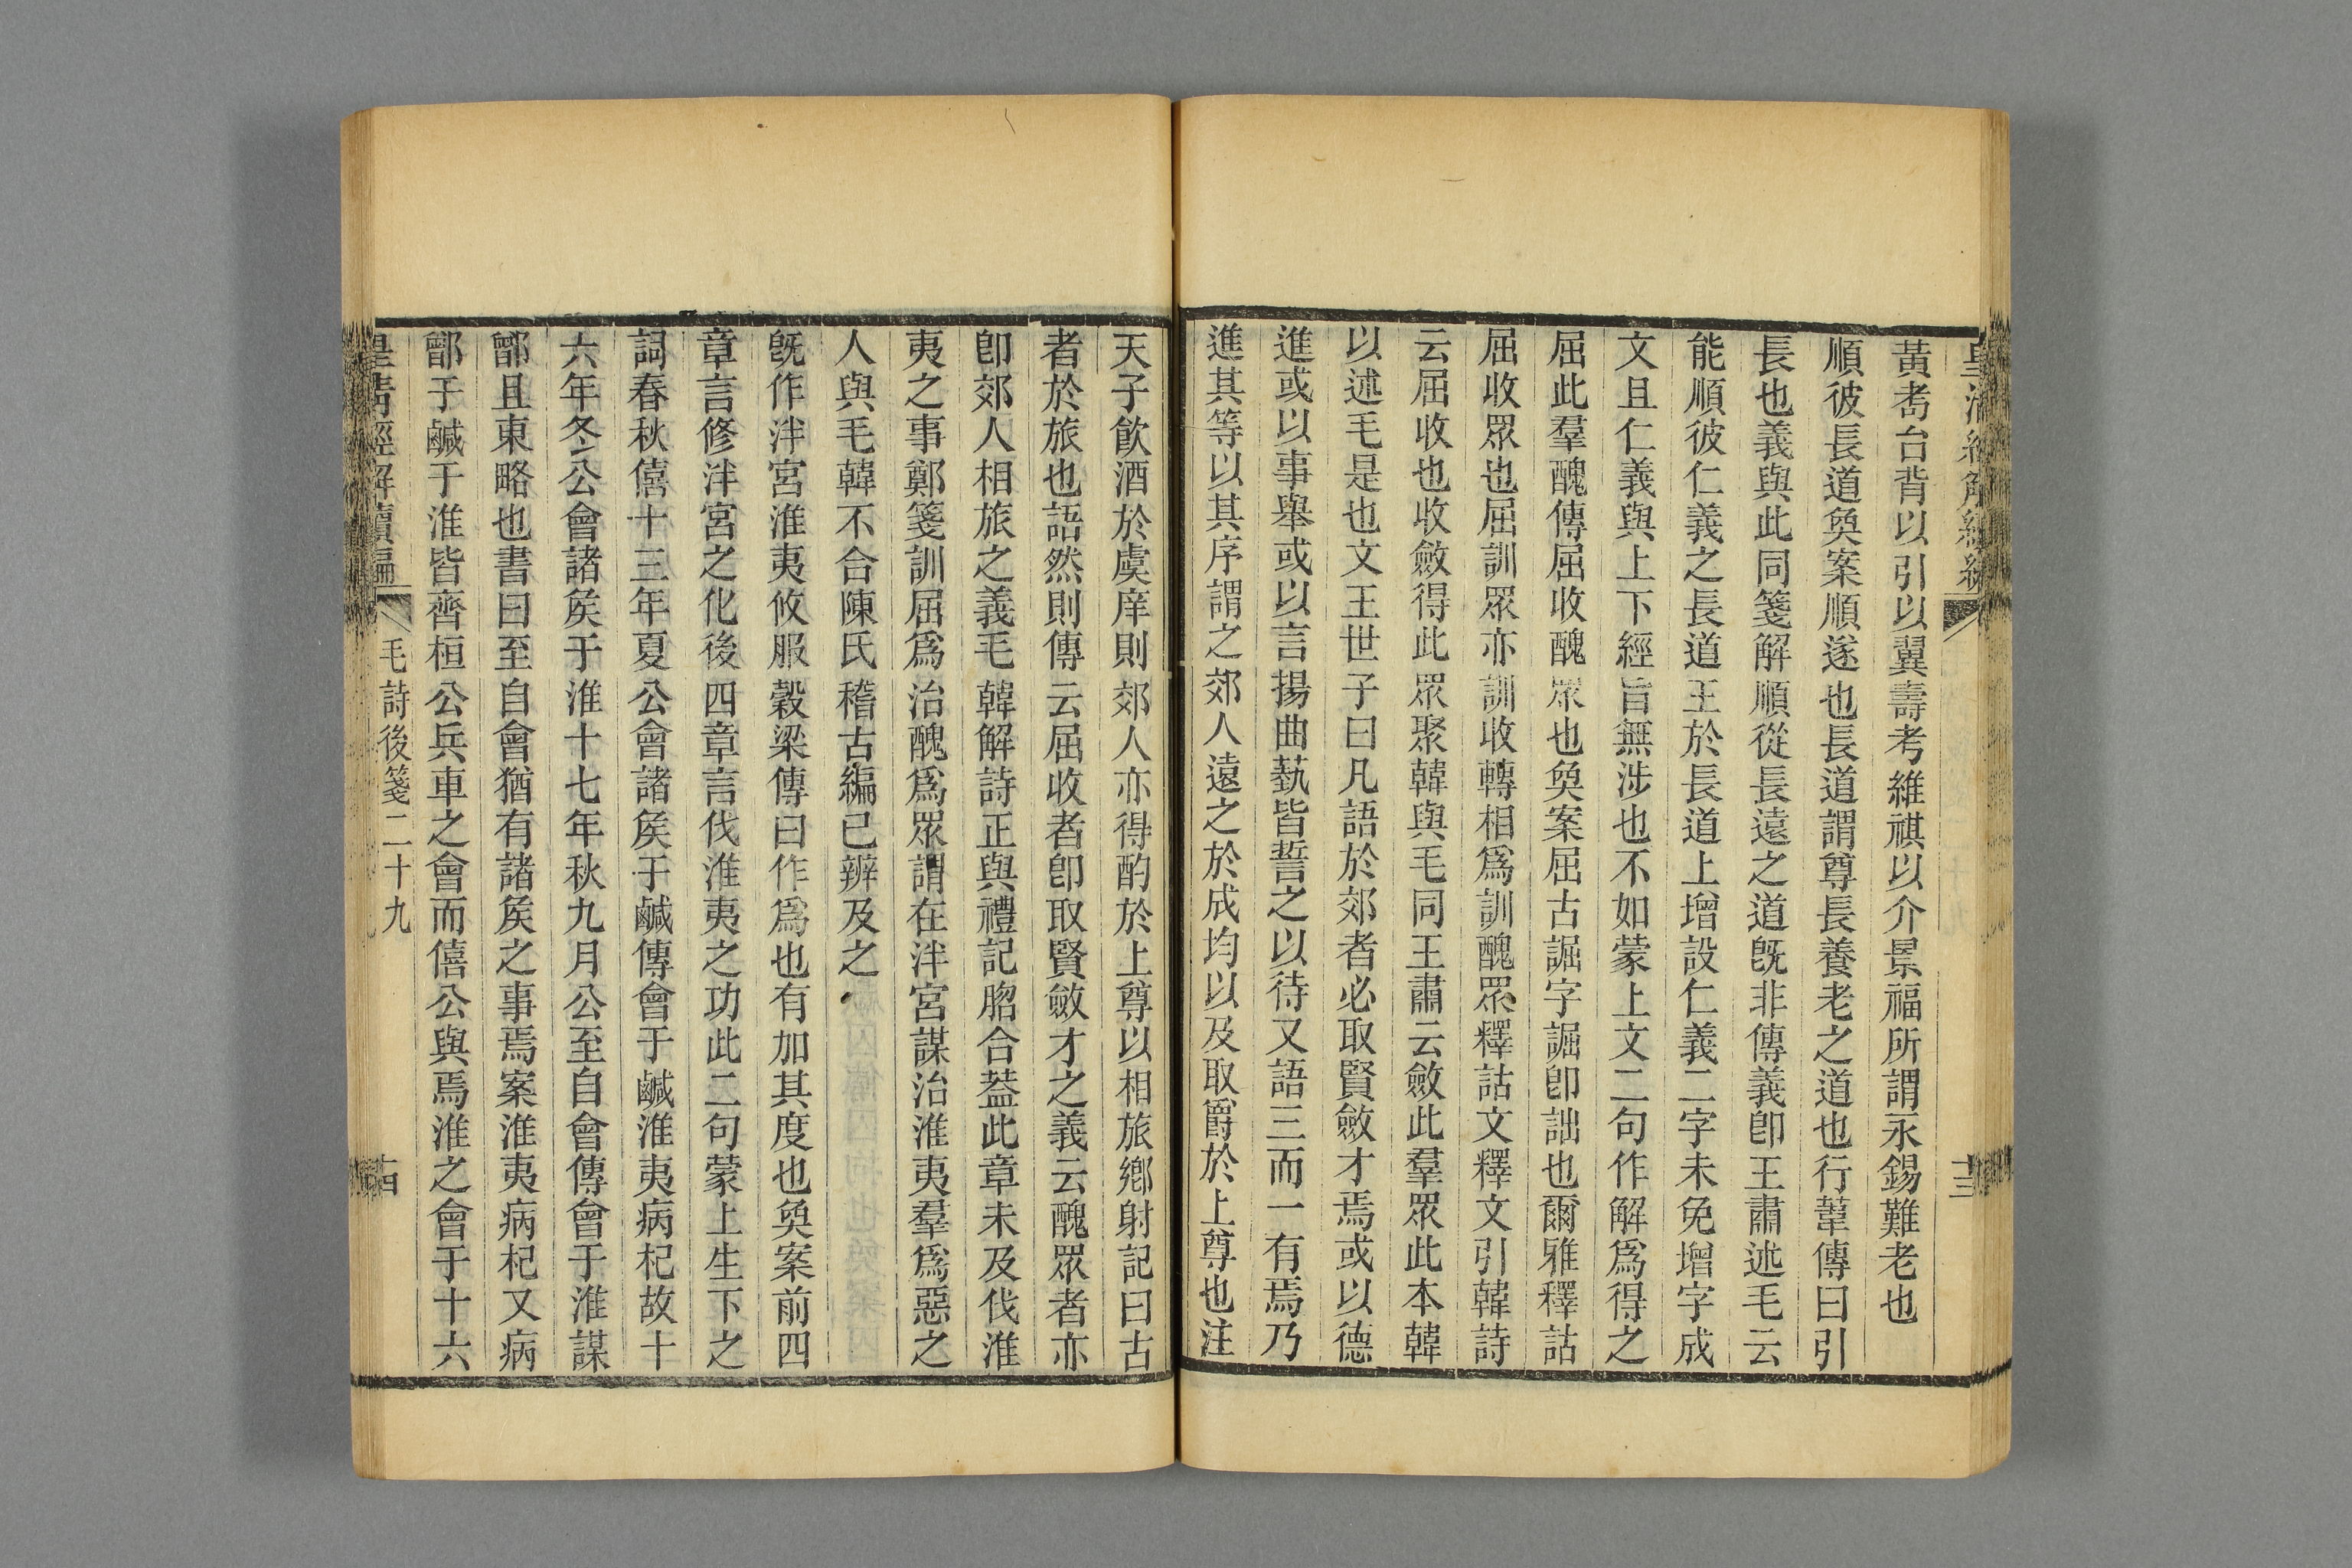 黃耉台背以引以翼壽考維祺以介景福所謂永錫難老也
順彼長道奐案順遂也長道謂尊長養老之道也行葦傳曰引
長也義與此同箋解順從長遠之道旣非傳義卽王肅述毛云
能順彼仁義之長道王於長道上增設仁義二字未免增字成
文且仁義與上下經旨無涉也不如蒙上文二句作解爲得之
屈此羣醜傳屈收醜眾也奐案屈古誳字誳卽詘也爾雅釋詁
屈收眾也屈訓眾亦訓收轉相爲訓醜眾釋詁文釋文引韓詩
云屈收也收斂得此眾聚韓與毛同王肅云斂此羣眾此本韓
以述毛是也文王世子曰凡語於郊者必取賢斂才焉或以德
進或以事舉或以言揚曲藝皆誓之以待又語三而一有焉乃
進其等以其序謂之郊人遠之於成均以及取爵於上尊也注
天子飮酒於虞庠則郊人亦得酌於上尊以相旅鄉射記曰古
者於旅也語然則傳云屈收者卽取賢斂才之義云醜眾者亦
卽郊人相旅之義毛韓解詩正與禮記脗合葢此章未及伐淮
夷之事鄭箋訓屈爲治醜爲眾謂在泮宮謀治淮夷羣爲惡之
人與毛韓不合陳氏稽古編已辨及之
旣作泮宮淮夷攸服穀梁傳曰作爲也有加其度也奐案前四
章言修泮宮之化後四章言伐淮夷之功此二句蒙上生下之
詞春秋僖十三年夏公會諸矦于鹹傳會于鹹淮夷病杞故十
六年冬公會諸矦于淮十七年秋九月公至自會傳會于淮謀
鄫且東略也書曰至自會猶有諸矦之事焉案淮夷病杞又病
鄫于鹹于淮皆齊桓公兵車之會而僖公與焉淮之會于十六
皇淸經解續編 毛詩後箋二十九 十四